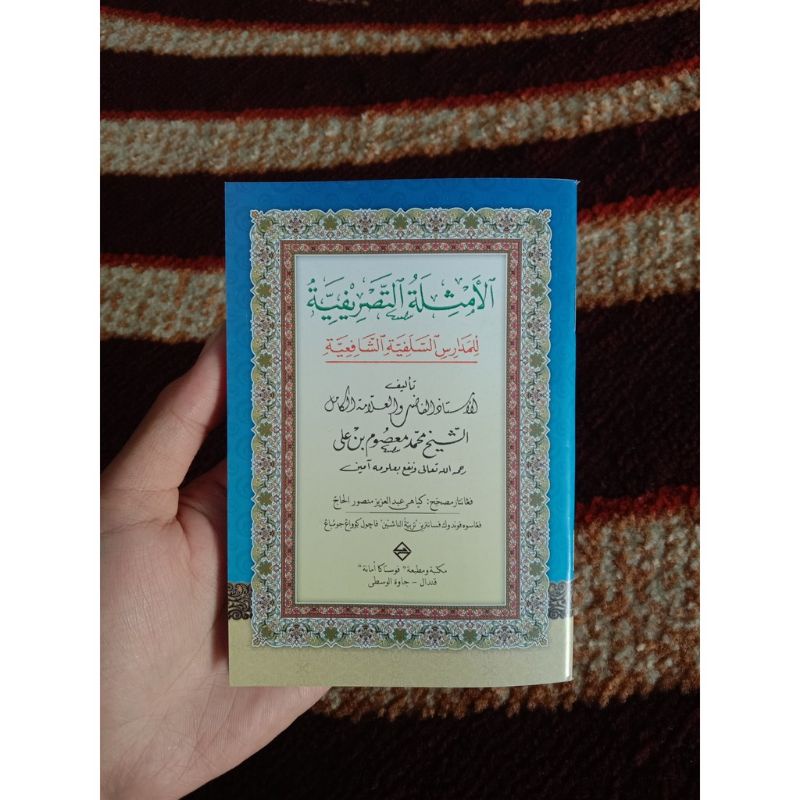 الأَمْثِلَةُ التَّصْرِيفِيَّةُ
لِلْمَدَارِسِ السَّلَفِيَّةِ الشَّافِعِيَّةِ
تأليف
الأستاذ الفاضل والعلامة الكامل
الشيخ محمد معصوم بن علي
رحمه الله تعالى ونفع بعلومه آمين
فڠانتار مصحح: كياهي عبد العزيز منصور الحاج
فڠاسوه فوندوك فسانترين "تربية الناشئين" فاچول ڮوواڠ جومباڠ
مكتبة ومطبعة "فوستاكا أمانة"
قندال - جاوة الوسطى